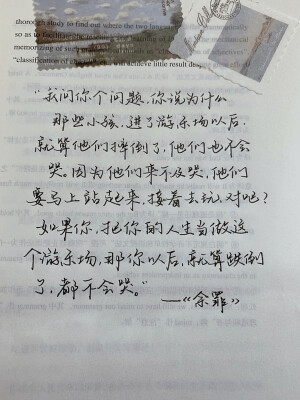 thorough study to find out where the two lang
so as to facilita
memorizing of
"classification of c
"我问你个问题,你说为什么
那些小孩,进了游乐场以后,
就算他们摔倒了,他们也不会
哭。因为他们来不及哭,他们
要马上站起来,接着去玩,对吧?
如果你,把你的人生当做这
个游乐场,那你以后,就算跌倒
了,都不会哭。"
—《余罪》